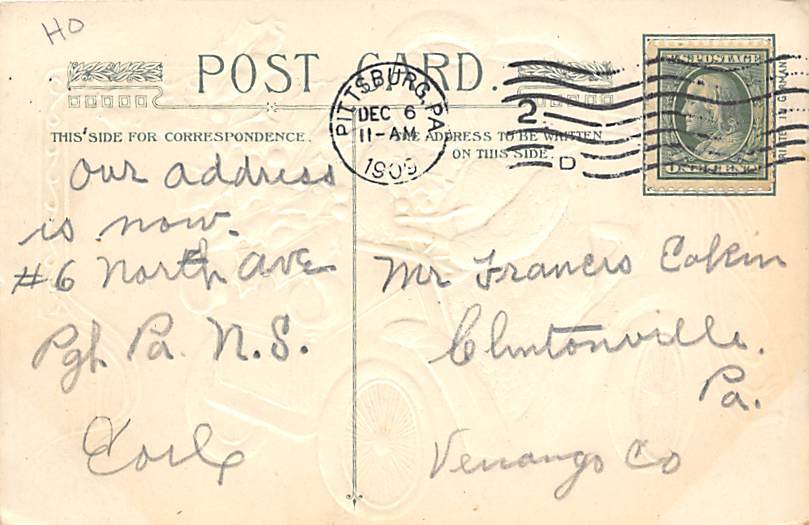 HO
POST CARD.
THIS SIDE FOR CORRESPONDENCE.
THE ADDRESS TO BE WRITTEN
ON THIS SIDE.
PITTSBURG, PA
DEC 6
11-AM
1909
2
D
U.S. POSTAGE
ONE CENT
PRINTED IN GERMANY
Our address
is now.
#6 North Ave
Pgh Pa. N.S.
Earl
Mr Francis Eakin
Clintonville.
Pa.
Venango Co